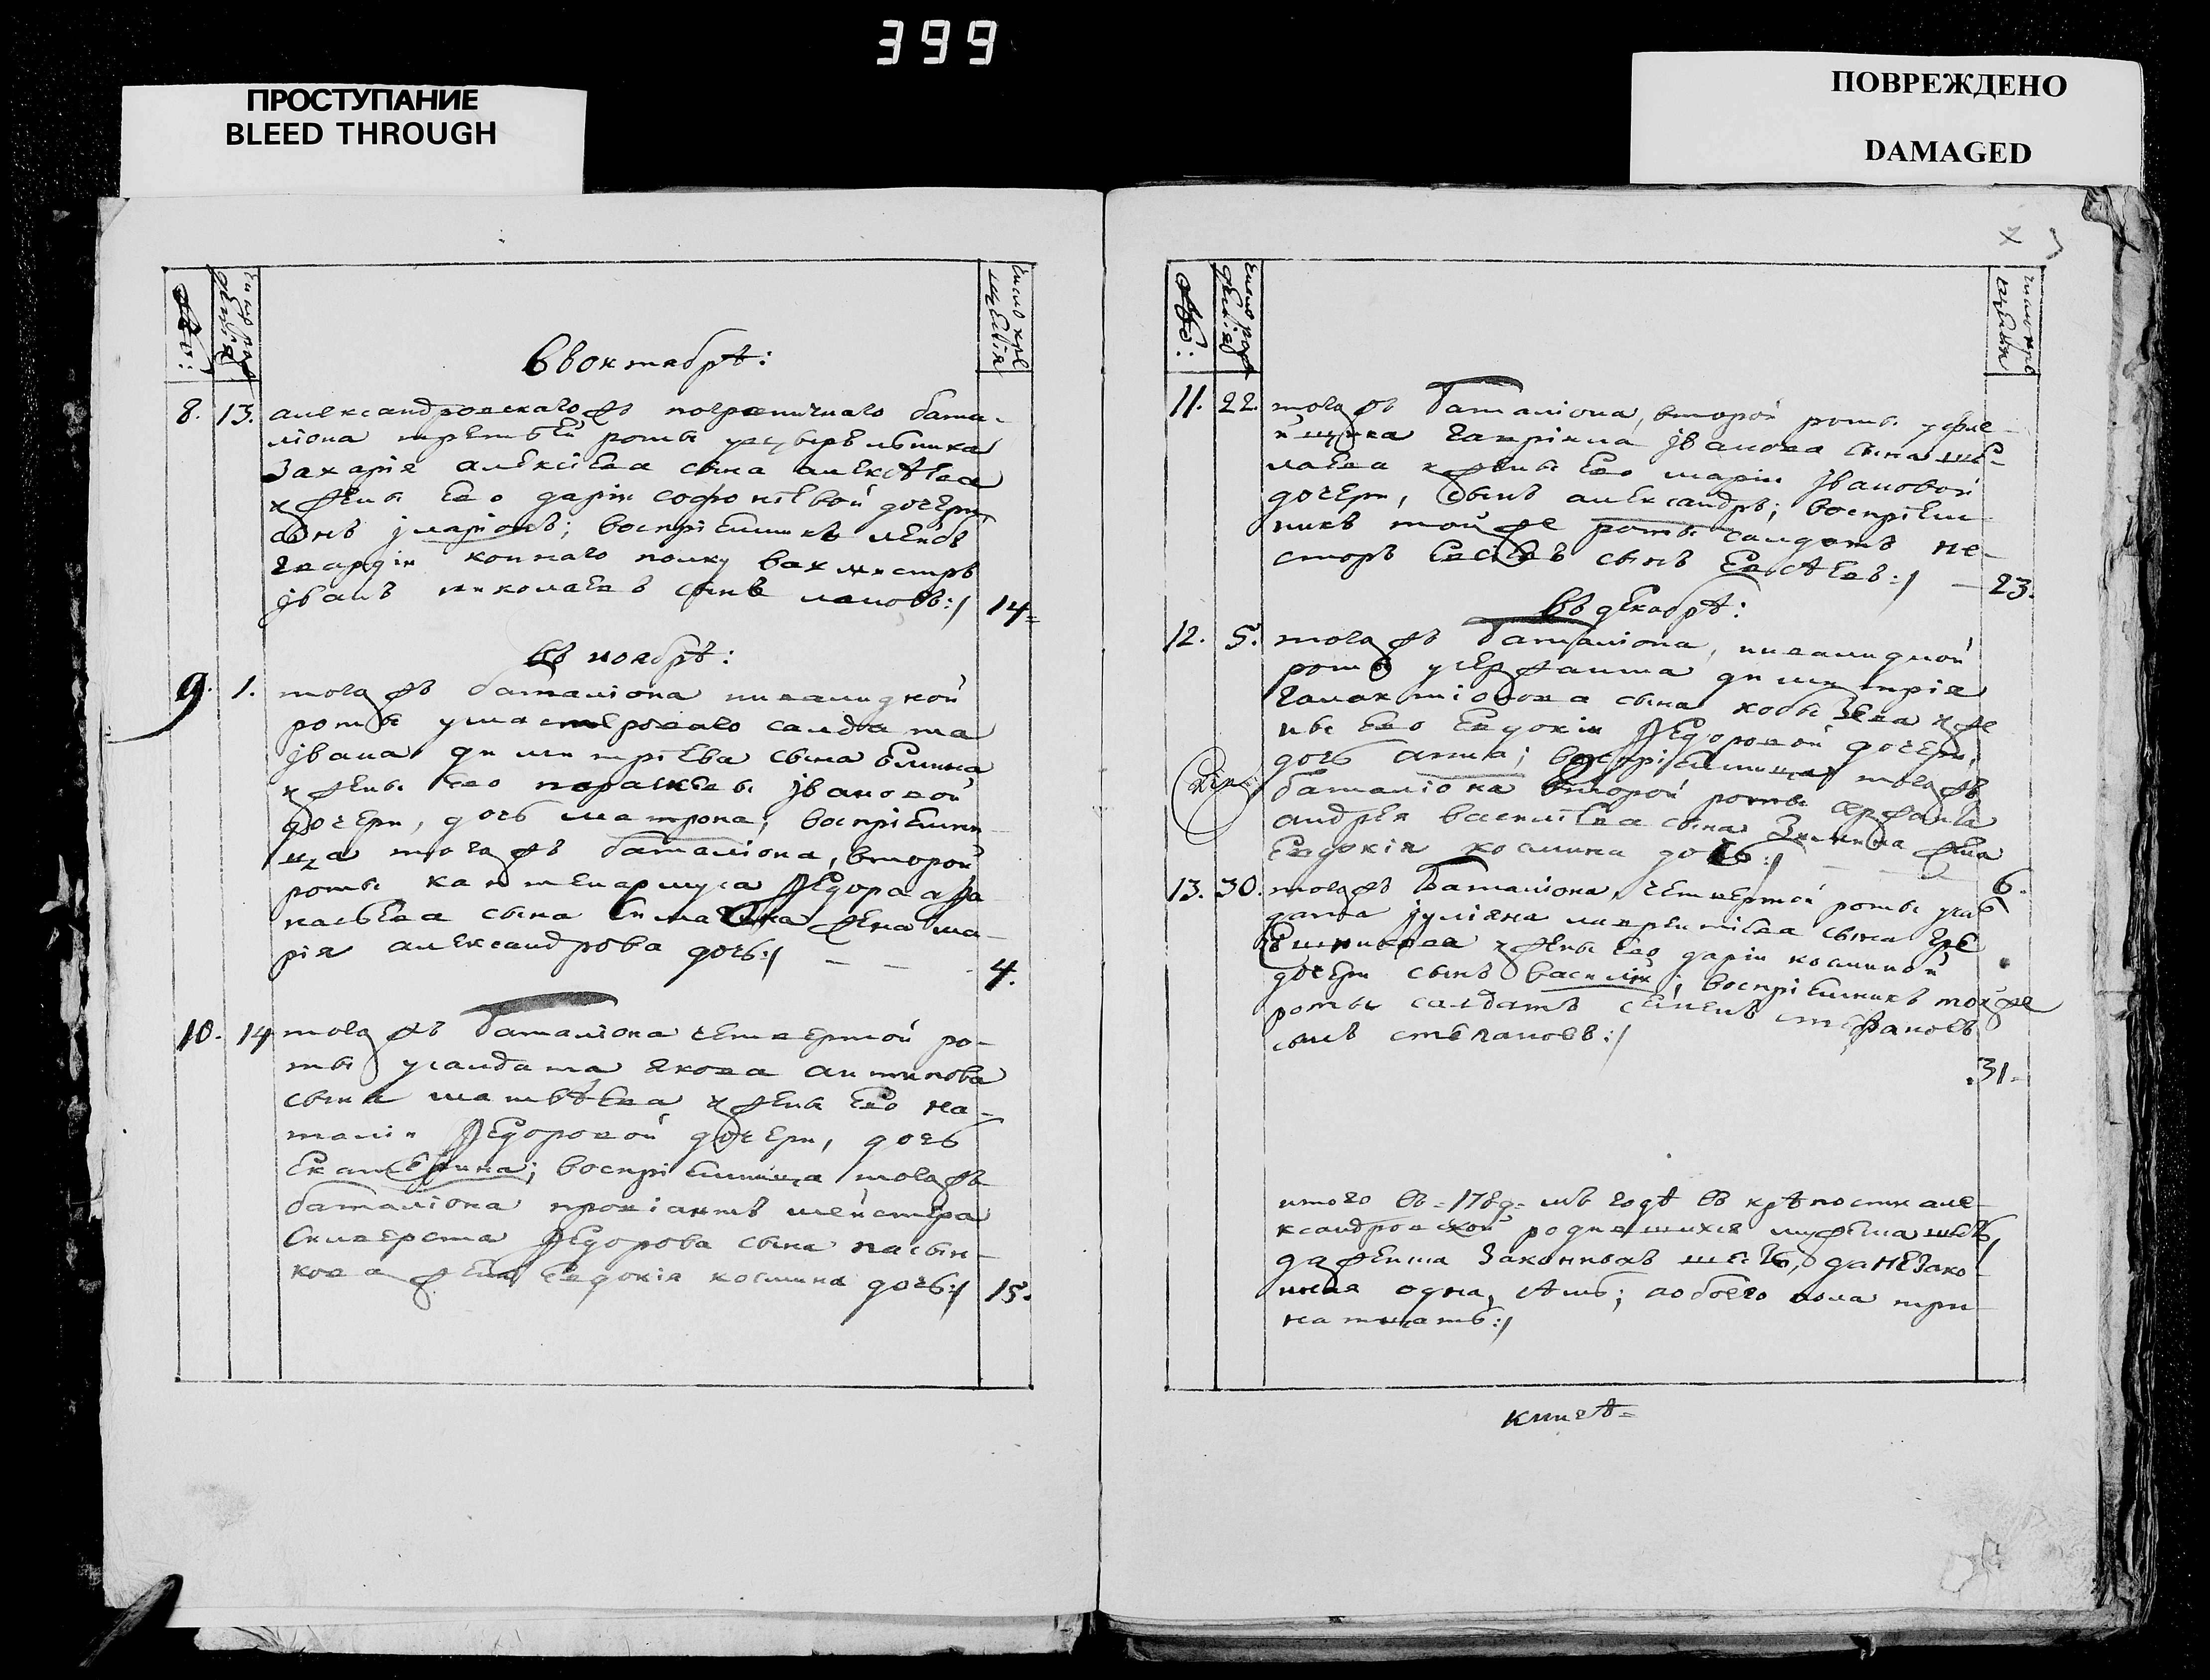 399
ПРОСТУПАНИЕ
BLEED THROUGH
ПОВРЕЖДЕНО
DAMAGED
число рождения
число крещения
в октябрѣ:
8. 13. александровскаго жъ пограничнаго бата-
лiона третьей роты
захарiя алексiева сына алексѣева
и жены ево дарiи софонтевой дочери
сынъ iларiонъ; воспрiемникъ лейбъ
гвардiи коннаго полку вахмистръ
iванъ николаевъ сынъ :/ 14=
въ ноябрѣ:
9. 1. тогажъ баталiона инвалидной
роты у мастероваго салдата
iвана димитрiева сына
и жены ево параскевы iвановой
дочери, дочь матрона; воспрiемни-
ца тогажъ баталiона, второй
роты каптенармуса федора афа-
насьева сына жена ма-
рiя александрова дочь:/ — — 4.
10. 14 тогажъ баталiона четвертой ро-
ты у салдата якова антипова
сына матвѣева и жены ево на-
талiи федоровой дочери, дочь
екатерина; воспрiемница тогажъ
баталiона провiантъ мейстера
силверста федорова сына пасын-
кова жена евдокiя космина дочь:/ 15.
число рождения
число крещения
11. 22. тогажъ баталiона, второй роты у флей-
щика гаврiила iванова сына
и жены ево марiи iвановой
дочери, сынъ александръ; воспрiем-
никъ той же роты салдатъ не-
сторъ сынъ евсѣевъ:/ — 23.
въ декабрѣ:
12. 5. тогажъ баталiона, инвалидной
роты у сержанта димитрiя
галактiонова сына кобызева и же
ны ево евдокiи федоровой дочери,
дочь анна; воспрiемница тогажъ
баталiона второй роты сержанта
андрея василiева сына зимина жена
евдокiя космина дочь:/ — — 6.
13. 30. тогажъ баталiона, четвертой роты у сал
дата iулiяна лаврентiева сына
и жены ево дарiи косминой
дочери сынъ василiй; воспрiемникъ тойже
роты салдатъ семенъ стефановъ
сынъ степановъ:/
31.
итого въ =178 = мъ годѣ въ крѣпости але-
ксандровской родившихся мужеска шесть,
да женска законныхъ шесть, да незако-
нная одна, ; а обоего пола три
натцать:/
книгѣ=